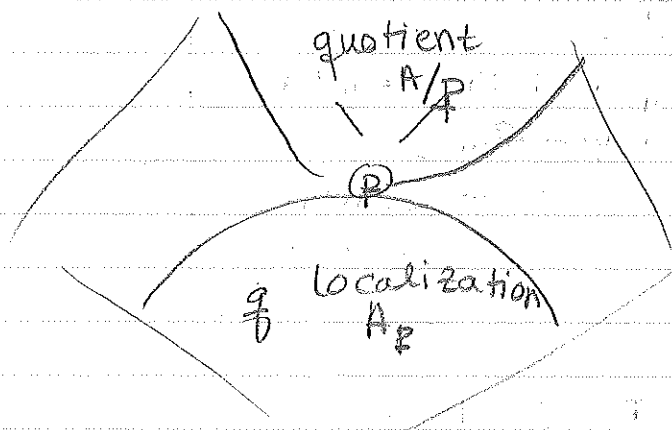 quotient
A/p
p
q localization
A_p